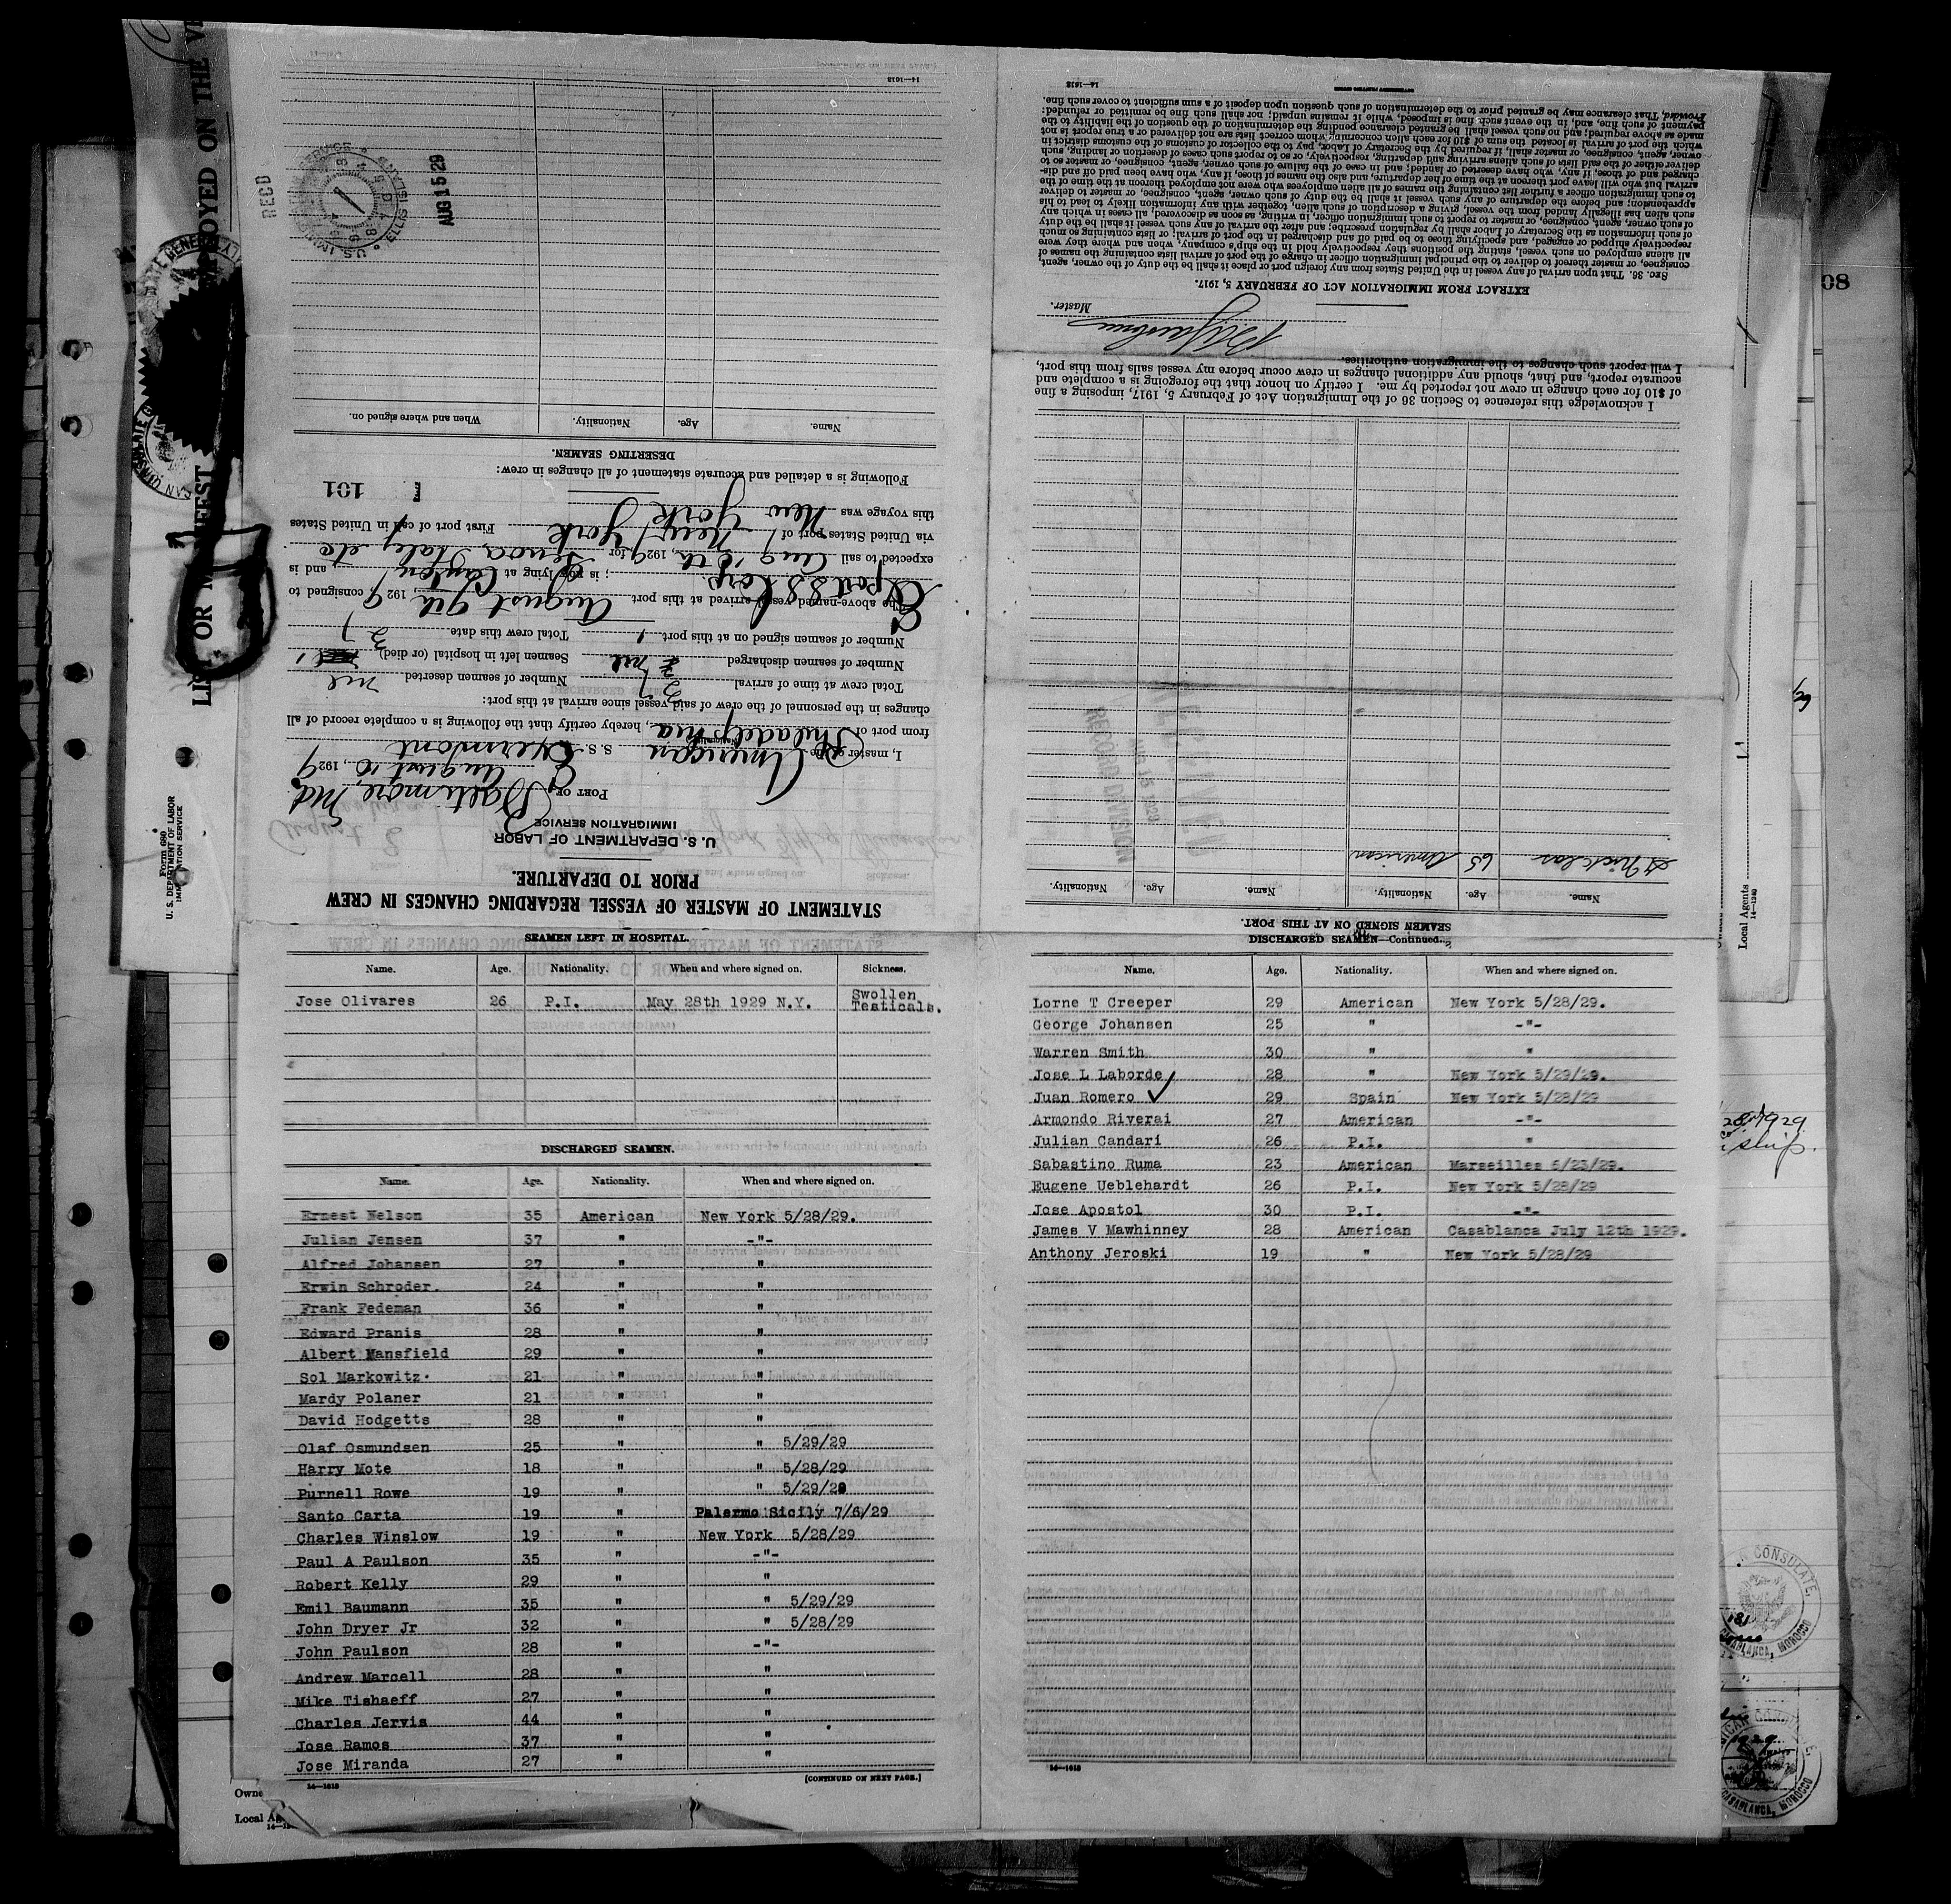 STATEMENT OF MASTER OF VESSEL REGARDING CHANGES IN CREW
PRIOR TO DEPARTURE.
U. S. DEPARTMENT OF LABOR
IMMIGRATION SERVICE
PORT OF Baltimore, Md.
August 10, 1929
I, master of the American S. S. Exermont
from port of Philadelphia, hereby certify that the following is a complete record of all
changes in the personnel of the crew of said vessel since arrival at this port:
Total crew at time of arrival 37 Number of seamen deserted nil
Number of seamen discharged nil Seamen left in hospital (or died) 1
Number of seamen signed on at this port 1 Total crew this date 37
The above-named vessel arrived at this port August 9th, 1929, consigned to
Export SS Corp.; is now lying at Canton, and is
expected to sail Aug 10th, 1929, for Genoa Italy etc
via United States port of New York First port of call in United States
this voyage was New York
101
Following is a detailed and accurate statement of all changes in crew:
DESERTING SEAMEN.
Name. Age. Nationality. When and where signed on.
RECD
U.S. IMMIGRATION SERVICE
ELLIS ISLAND
AUG 15 29
14—1618
SEAMEN LEFT IN HOSPITAL
Name. Age. Nationality. When and where signed on. Sickness.
Jose Olivares 26 P.I. May 28th 1929 N.Y. Swollen Testicals.
DISCHARGED SEAMEN.
Name. Age. Nationality. When and where signed on.
Ernest Nelson 35 American New York 5/28/29.
Julian Jensen 37 " -"-
Alfred Johansen 27 " "
Erwin Schroder. 24 " "
Frank Fedeman 36 " "
Edward Pranis 28 " "
Albert Mansfield 29 " "
Sol Markowitz. 21 " "
Mardy Polaner 21 " "
David Hodgetts 28 " "
Olaf Osmundsen 25 " " 5/29/29
Harry Mote 18 " " 5/28/29
Purnell Rowe 19 " " 5/29/29
Santo Carta 19 " Palermo Sicily 7/6/29
Charles Winslow 19 " New York 5/28/29
Paul A Paulson 35 " -"-
Robert Kelly 29 " "
Emil Baumann 35 " " 5/29/29
John Dryer Jr 32 " " 5/28/29
John Paulson 28 " -"-
Andrew Marcell 28 " "
Mike Tishaeff 27 " "
Charles Jervis 44 " "
Jose Ramos 37 " "
Jose Miranda 27 " "
14—1618
[CONTINUED ON NEXT PAGE.]
DISCHARGED SEAMEN—Continued.
Name. Age. Nationality. When and where signed on.
Lorne T Creeper 29 American New York 5/28/29.
George Johansen 25 " -"-
Warren Smith 30 " "
Jose L Laborde 28 " New York 5/29/29.
Juan Romero ✓ 29 Spain New York 5/28/29
Armondo Riverai 27 American -"-
Julian Candari 26 P.I. "
Sabastino Ruma 23 American Marseilles 6/23/29.
Eugene Ueblehardt 26 P.I. New York 5/28/29
Jose Apostol 30 P.I. -"-
James V Mawhinney 28 American Casablanca July 12th 1929.
Anthony Jeroski 19 " New York 5/28/29
14—1618
SEAMEN SIGNED ON AT THIS PORT.
Name. Age. Nationality. Name. Age. Nationality.
Nicklas 65 American
RECORD DIVISION
I acknowledge this reference to Section 36 of the Immigration Act of February 5, 1917, imposing a fine
of $10 for each change in crew not reported by me. I certify on honor that the foregoing is a complete and
accurate report, and that, should any additional changes in crew occur before my vessel sails from this port,
I will report such changes to the immigration authorities.
Master.
EXTRACT FROM IMMIGRATION ACT OF FEBRUARY 5, 1917.
SEC. 36. That upon arrival of any vessel in the United States from any foreign port or place it shall be the duty of the owner, agent,
consignee, or master thereof to deliver to the principal immigration officer in charge of the port of arrival lists containing the names of
all aliens employed on such vessel, stating the positions they respectively hold in the ship's company, when and where they were
respectively shipped or engaged, and specifying those to be paid off and discharged in the port of arrival; or lists containing so much
of such information as the Secretary of Labor shall by regulation prescribe; and after the arrival of any such vessel it shall be the duty
of such owner, agent, consignee, or master to report to such immigration officer, in writing, as soon as discovered, all cases in which any
such alien has illegally landed from the vessel, giving a description of such alien, together with any information likely to lead to his
apprehension; and before the departure of any such vessel it shall be the duty of such owner, agent, consignee, or master to deliver
to such immigration officer a further list containing the names of all alien employees who were not employed thereon at the time of the
arrival but who will leave port thereon at the time of her departure, and also the names of those, if any, who have been paid off and dis-
charged and of those, if any, who have deserted or landed; and in case of the failure of such owner, agent, consignee, or master so to
deliver either of the said lists of such aliens arriving and departing, respectively, or so to report such cases of desertion or landing, such
owner, agent, consignee, or master shall, if required by the Secretary of Labor, pay to the collector of customs of the customs district in
which the port of arrival is located the sum of $10 for each alien concerning whom correct lists are not delivered or a true report is not
made as above required; and no such vessel shall be granted clearance pending the determination of the question of the liability to the
payment of such fine, and, in the event such fine is imposed, while it remains unpaid; nor shall such fine be remitted or refunded:
Provided, That clearance may be granted prior to the determination of such question upon deposit of a sum sufficient to cover such fine.
14—1618
Form 680
U. S. DEPARTMENT OF LABOR
IMMIGRATION SERVICE
LIST OR MANIFEST
EMPLOYED ON THE
Local Agents
14—1240
08
ship.
CONSULATE,
CASABLANCA, MOROCCO
CASABLANCA, MOROCCO
Owne
Local Ag